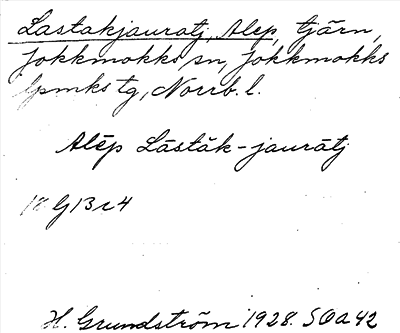 Lastakjauratj, Alep, tjärn,
Jokkmokks sn, Jokkmokks
lpmks tg, Norrb. l.
Alēp Lástāk-jaurātj
18 G 13 c 4
H. Grundström 1928. SOa 42